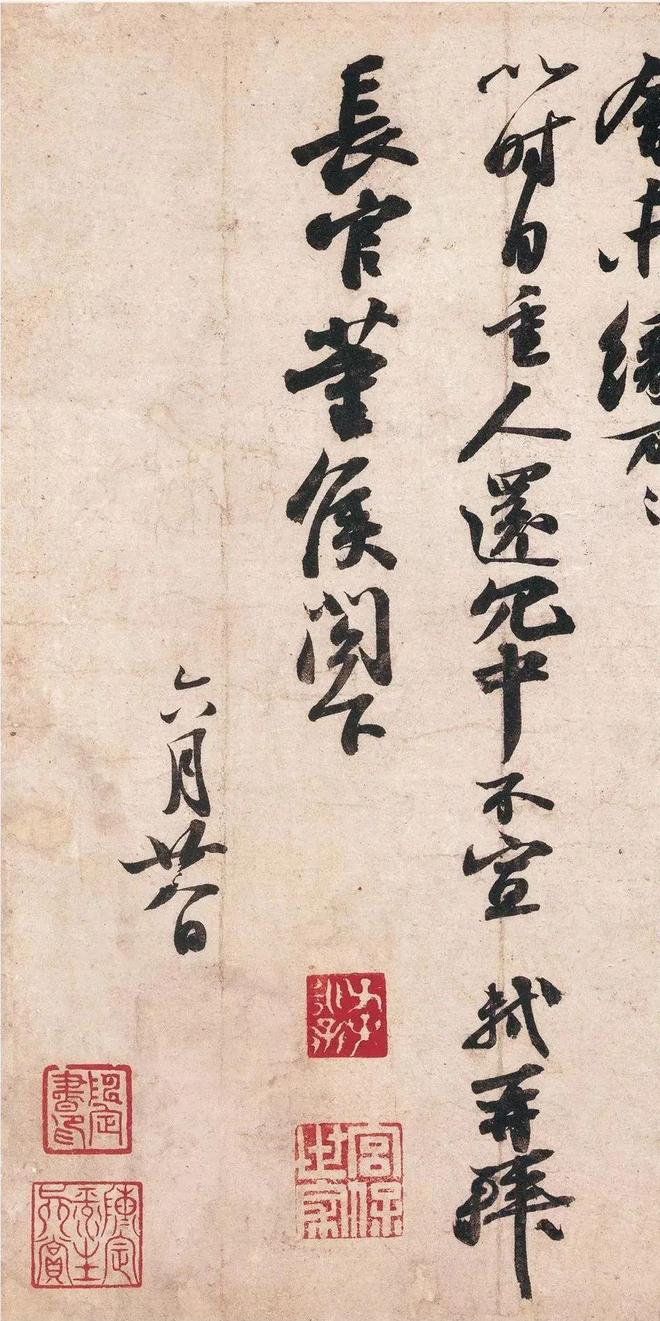 會未緣万〻
以时自重人還冗中不宣 軾再拜
長官董侯閤下
六月廿八日
宮保世家